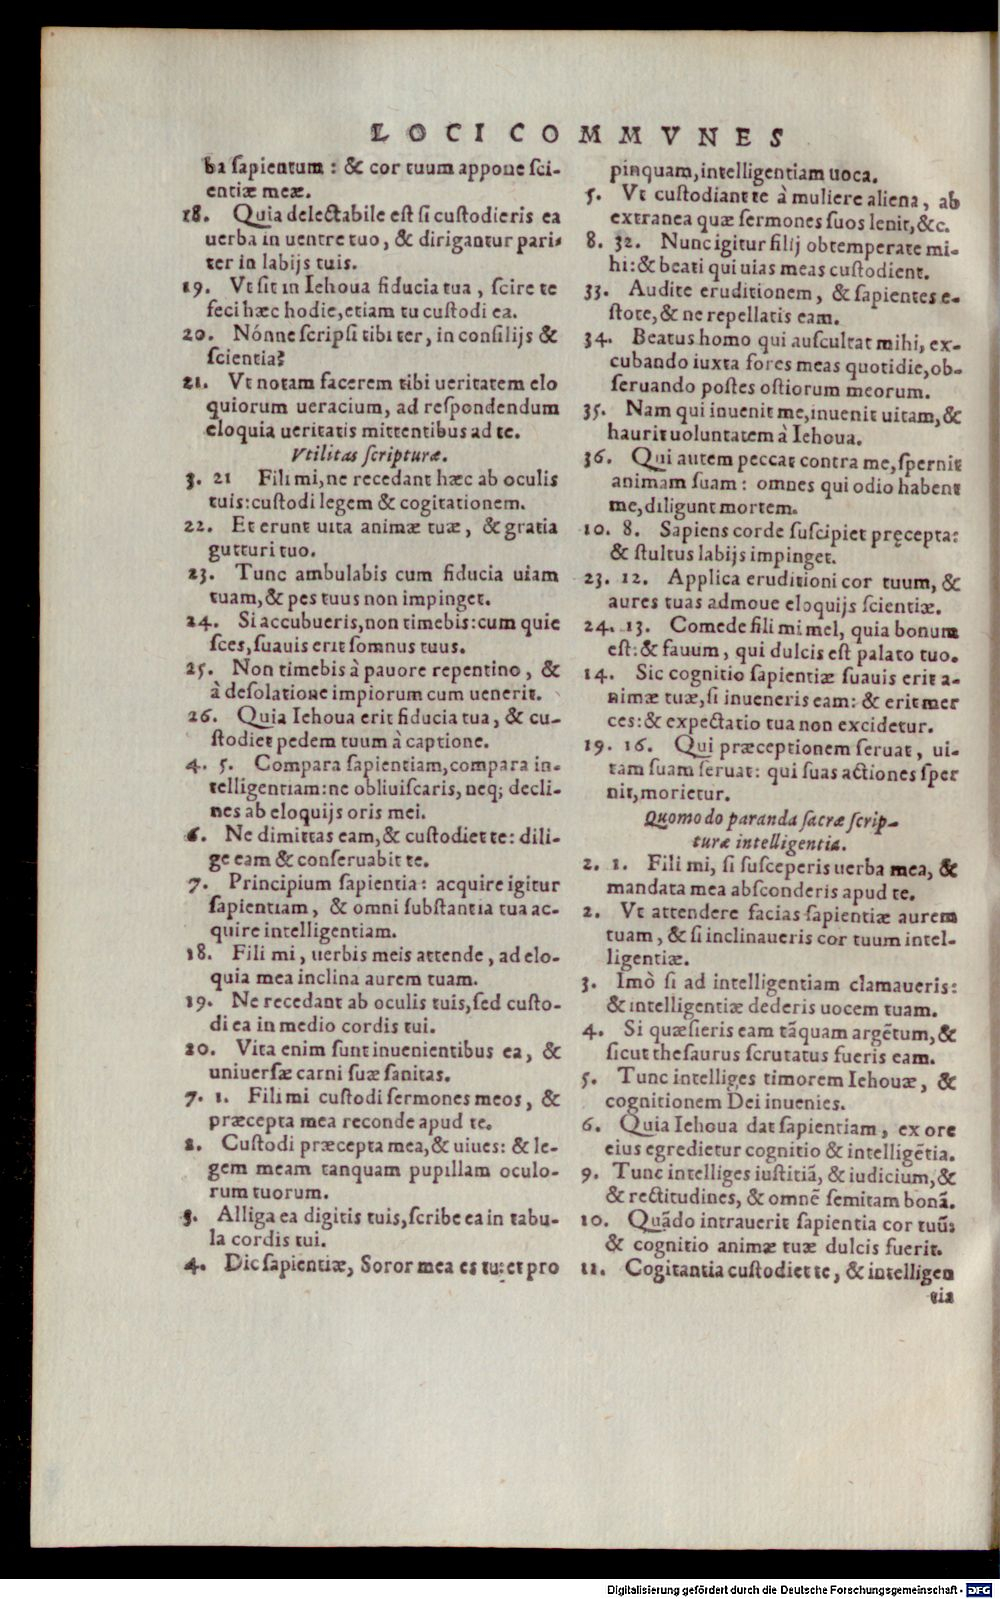 LOCI COMMVNES
ba sapientum : & cor tuum appone sci-
entiæ meæ.
18. Quia delectabile est si custodieris ea
uerba in uentre tuo, & dirigantur pari-
ter in labijs tuis.
19. Vt sit in Iehoua fiducia tua, scire te
feci hæc hodie, etiam tu custodi ea.
20. Nónne scripsi tibi ter, in consilijs &
scientia?
21. Vt notam facerem tibi ueritatem elo
quiorum ueracium, ad respondendum
eloquia ueritatis mittentibus ad te.
Vtilitas scripturæ.
3. 21 Fili mi, ne recedant hæc ab oculis
tuis: custodi legem & cogitationem.
22. Et erunt uita animæ tuæ, & gratia
gutturi tuo.
23. Tunc ambulabis cum fiducia uiam
tuam, & pes tuus non impinget.
24. Si accubueris, non timebis: cum quie
sces, suauis erit somnus tuus.
25. Non timebis à pauore repentino, &
à desolatione impiorum cum uenerit.
26. Quia Iehoua erit fiducia tua, & cu-
stodiet pedem tuum à captione.
4. 5. Compara sapientiam, compara in-
telligentiam: ne obliuiscaris, neq; decli-
nes ab eloquijs oris mei.
6. Ne dimittas eam, & custodiet te: dili-
ge eam & conseruabit te.
7. Principium sapientia: acquire igitur
sapientiam, & omni substantia tua ac-
quire intelligentiam.
18. Fili mi, uerbis meis attende, ad elo-
quia mea inclina aurem tuam.
19. Ne recedant ab oculis tuis, sed custo-
di ea in medio cordis tui.
20. Vita enim sunt inuenientibus ea, &
uniuersæ carni suæ sanitas.
7. 1. Fili mi custodi sermones meos, &
præcepta mea reconde apud te.
2. Custodi præcepta mea, & uiues: & le-
gem meam tanquam pupillam oculo-
rum tuorum.
3. Alliga ea digitis tuis, scribe ea in tabu-
la cordis tui.
4. Dic sapientiæ, Soror mea es tu: et pro
pinquam, intelligentiam uoca.
5. Vt custodiant te à muliere aliena, ab
extranea quæ sermones suos lenit, &c.
8. 32. Nunc igitur filij obtemperate mi-
hi: & beati qui uias meas custodient.
33. Audite eruditionem, & sapientes e-
stote, & ne repellatis eam.
34. Beatus homo qui auscultat mihi, ex-
cubando iuxta fores meas quotidie, ob-
seruando postes ostiorum meorum.
35. Nam qui inuenit me, inuenit uitam, &
haurit uoluntatem à Iehoua.
36. Qui autem peccat contra me, spernit
animam suam: omnes qui odio habent
me, diligunt mortem.
10. 8. Sapiens corde suscipiet pręcepta:
& stultus labijs impinget.
23. 12. Applica eruditioni cor tuum, &
aures tuas admoue eloquijs scientiæ.
24. 13. Comede fili mi mel, quia bonum
est: & fauum, qui dulcis est palato tuo.
14. Sic cognitio sapientiæ suauis erit a-
nimæ tuæ, si inueneris eam: & erit mer
ces: & expectatio tua non excidetur.
19. 16. Qui præceptionem seruat, ui-
tam suam seruat: qui suas actiones sper
nit, morietur.
Quomodo paranda sacræ scrip-
turæ intelligentia.
2. 1. Fili mi, si susceperis uerba mea, &
mandata mea absconderis apud te.
2. Vt attendere facias sapientiæ aurem
tuam, & si inclinaueris cor tuum intel-
ligentiæ.
3. Imò si ad intelligentiam clamaueris:
& intelligentiæ dederis uocem tuam.
4. Si quæsieris eam tãquam argẽtum, &
sicut thesaurus scrutatus fueris eam.
5. Tunc intelliges timorem Iehouæ, &
cognitionem Dei inuenies.
6. Quia Iehoua dat sapientiam, ex ore
eius egredietur cognitio & intelligẽtia.
9. Tunc intelliges iustitiã, & iudicium, &
& rectitudines, & omnẽ semitam bonã.
10. Quãdo intrauerit sapientia cor tuũ:
& cognitio animæ tuæ dulcis fuerit.
11. Cogitantia custodiet te, & intelligen
tia
Digitalisierung gefördert durch die Deutsche Forschungsgemeinschaft - DFG